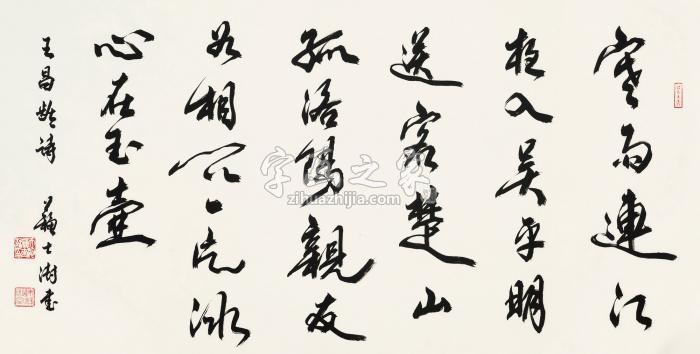 寒雨連江
夜入吴平明
送客楚山
孤洛陽親友
如相问一片冰
心在玉壺
王昌齡詩 蘇士澍書
字画之家
zihuazhijia.com